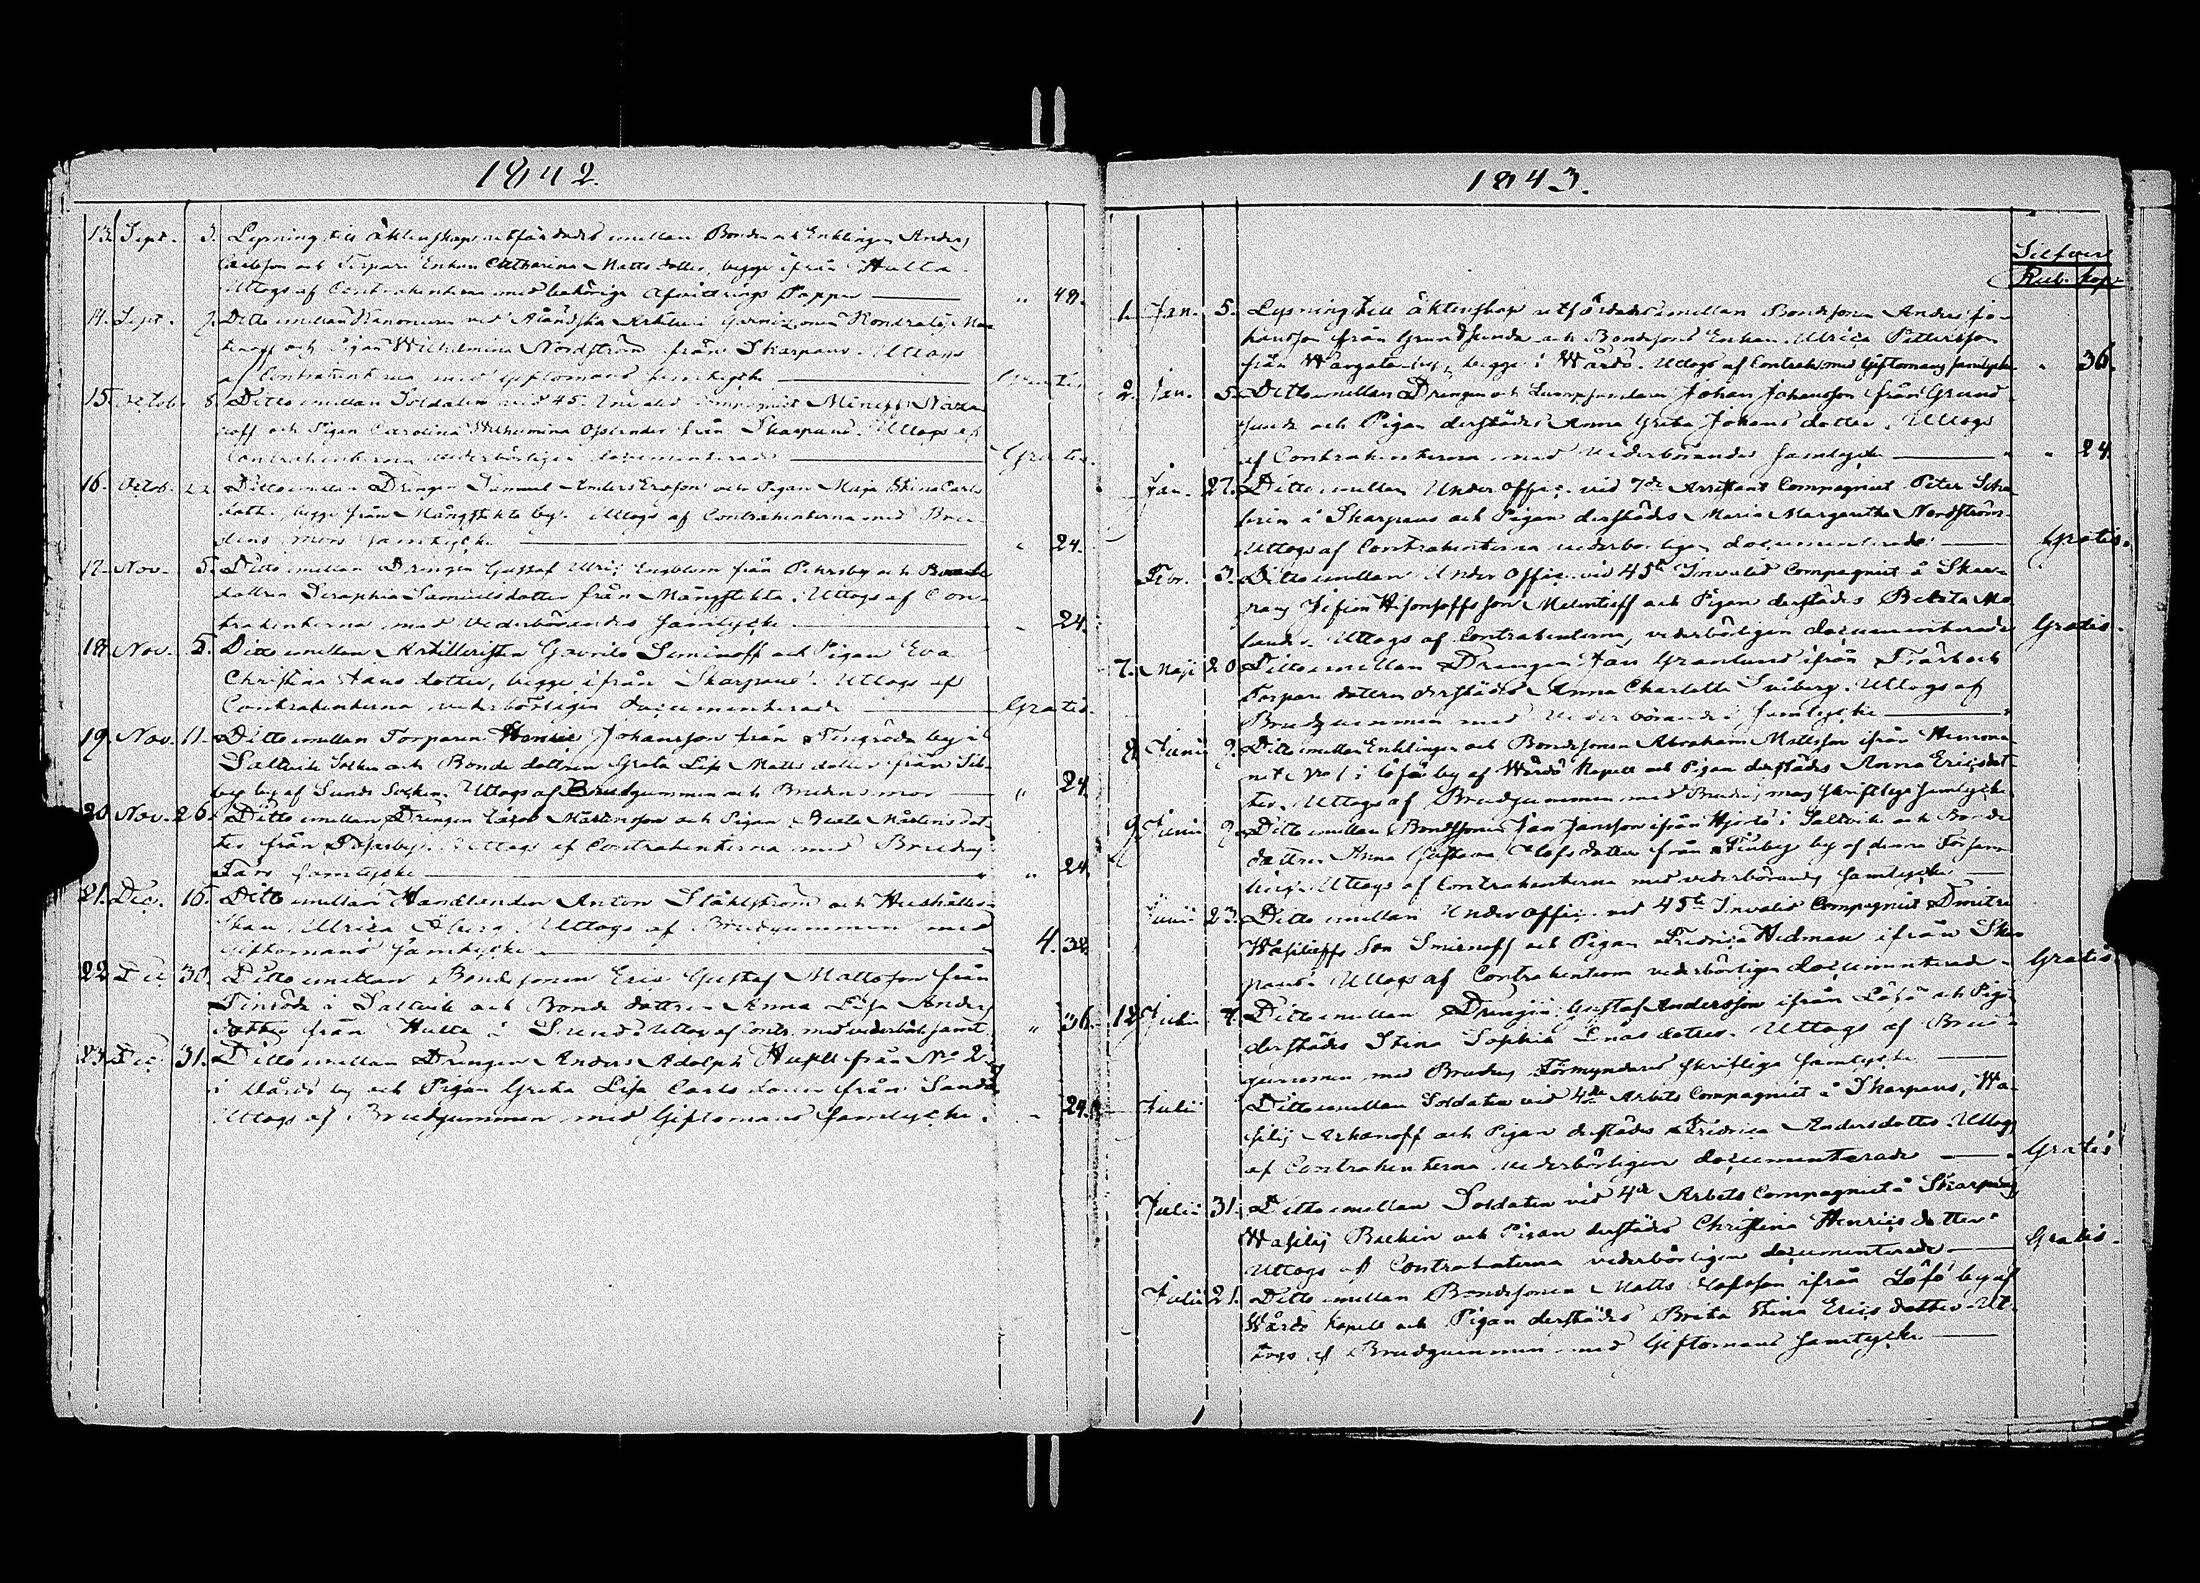 1842.
13. Sept. 3. Lysning till äktenskap utfärdades emellan Bonden och Enklingen Anders
Carlsson och Torpare Enkan Catharina Matts dotter, begge ifrån Hulta.
Uttogs af Contrahenterna med behörige Afvittrings Papper — " 48.
14. Sept. 7. Ditto emellan Kanonieren vid Åländska Artilleri Garnizonen Kondratej
och Pigan Wilhelmina Nordström från Skarpans. Uttogs
af Contrahenterna med Giftomans samtycke — Gratis
15. Octob. 8. Ditto emellan Soldaten vid 45. Invalid Compagniet
noff och Pigan Carolina Wilhelmina från Skarpans. Uttogs af
Contrahenterna vederbörligen documenterade — Gratis.
16. Octob. 22. Ditto emellan Drengen Samuel Anders Ersson och Pigan Maja Stina Carls
dotter, begge från Mångstekta by. Uttogs af Contrahenterna med Bru-
dens mors samtycke — " 24.
17. Nov. 5. Ditto emellan Drengen Gustaf Ulric Engblom från Pehrsby och Bonde
dottren Seraphia Samuelsdotter från Mångstekta. Uttogs af Con-
trahenterna med vederbörandes samtycke — " 24.
18. Nov. 5. Ditto emellan Artilleristen Gavrilo Seminoff och Pigan Eva
Christina Hans dotter, begge ifrån Skarpans. Uttogs af
Contrahenterna vederbörligen documenterade — Gratis.
19. Nov. 11. Ditto emellan Torparen Johansson från Tengröda by i
Saltvik Socken och Bonde dottren Greta Lisa Matts dotter från Sib-
by by af Sunds Socken. Uttogs af Brudgummen och Brudens mor — " 24.
20. Nov. 26. Ditto emellan Drengen Mårtensson och Pigan Beata Mårtens dot-
ter från Uttogs af Contrahenterna med Brudens
Fars samtycke — " 24.
21. Dec. 16. Ditto emellan Handlanden Anton Stålström och Hushålls-
Ulrica Åberg. Uttogs af Brudgummen med
Giftomans samtycke — 4. 38.
22. Dec. 30. Ditto emellan Bondesonen Eric Gustaf Mattsson från
i Saltvik och Bonde dottren Anna Lisa Anders
dotter från Hulta i Sund. Uttog. af Contr. med vederbör. samt. " 36.
23. Dec. 31. Ditto emellan Drengen Anders Adolph från No 2
i Vårdö by och Pigan Greta Lisa Carls dotter från Sandö
Uttogs af Brudgummen med Giftomans samtycke. " 24.
1843.
Silfver
Rub. kop.
1. Jan. 5. Lysning till äktenskap utfärdades emellan Bondesonen Anders Jo-
hansson ifrån Grundsunda och Bondesons Enkan Ulrica Pettersson
från Wargata by, begge i Wårdö. Uttogs af Contrah. med Giftomans samtycke " 36.
2. Jan. 5. Ditto emellan Drengen och Johan Johansson från Grund
sunda och Pigan derstädes Anna Greta Johans dotter. Uttogs
af Contrahenterna med vederbörandes samtycke — " 24.
Jan. 27. Ditto emellan Under Offic. vid 7de Arrestant Compagniet Peter
å Skarpans och Pigan derstädes Maria Margaretha Nordström.
Uttogs af Contrahenterna vederbörligen documenterade — Gratis.
Febr. 3. Ditto emellan Under Offic. vid 45te Invalid Compagniet å Skar-
pans och Pigan derstädes Beata
Uttogs af Contrahenterna, vederbörligen documenterade Gratis.
7. Maji 20. Ditto emellan Drengen Jan Granlund ifrån och
Torpare dottren derstädes Anna Charlotta Sviberg. Uttogs af
Brudgummen med vederbörandes samtycke —
8. Junii 9. Ditto emellan Enklingen och Bondesonen Abraham Mattsson ifrån Hemma-
net No 1 i Löfö by af Wårdö Kapell och Pigan derstädes Anna Ericsdot-
ter. Uttogs af Brudgummen med Brudens mors skriftliga samtycke.
9. Junii 9. Ditto emellan Bondesonen Jan Jansson ifrån Hjortö i Saltvik och Bonde
dottren Anna Gustava Olofsdotter från Finby by af denna Försam-
ling. Uttogs af Contrahenterna med vederbörandes samtycke —
Junii 23. Ditto emellan Under Offic. vid 45te Invalid Compagniet Dmitri
Wasilieffs Son Smirnoff och Pigan Fredrica Widman ifrån Skar-
pans. Uttogs af Contrahenterna vederbörligen documenterade — Gratis
12. Julii 4. Ditto emellan Drengen Gustaf Andersson ifrån Löfö och Pig.
derstädes Stina Sophia Enas dotter. Uttogs af Brud-
gummen med Brudens Förmynderes skriftliga samtycke —
Julii Ditto emellan Soldaten vid 4de Arbets Compagniet å Skarpans, Wa-
silij Arhanoff och Pigan derstädes Fredrica Andersdotter. Uttogs
af Contrahenterna vederbörligen documenterade — Gratis
Julii 31. Ditto emellan Soldaten vid 4de Arbets Compagniet å Skarpans
Wasilij och Pigan derstädes Christina Henrics dotter.
Uttogs af Contrahenterna vederbörligen documenterade — Gratis.
Julii 21. Ditto emellan Bondesonen Matts Olofsson ifrån Löfö by af
Wårdö Kapell och Pigan derstädes Brita Stina Erics dotter. Ut-
togs af Brudgummen med Giftomans samtycke —